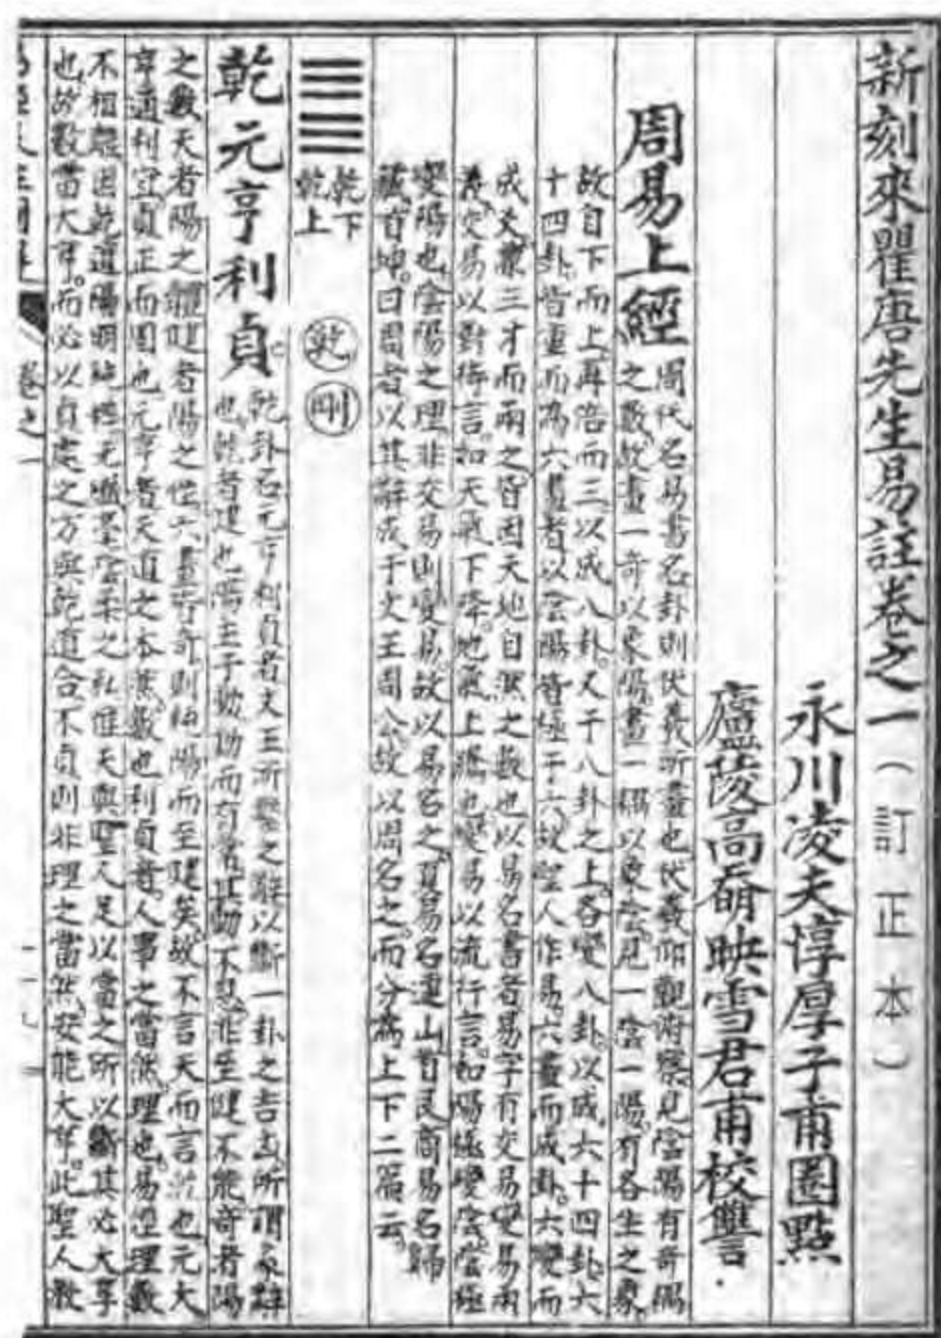 新刻來瞿唐先生易註卷之一（訂正本）
永川凌夫惇厚子甫圈點
廬陵高奣映雪君甫校讐
周易上經
周代名易書名卦則伏羲所畫也伏羲仰觀俯察見陰陽有奇偶
之數故畫一奇以象陽畫一耦以象陰見一陰一陽有各生之象
故自下而上再倍而三以成八卦又于八卦之上各變八卦以成六十四卦六
十四卦皆重而為六畫者以陰陽皆極于六故聖人作易六畫而成卦六變而
成爻兼三才而兩之皆因天地自然之數也以易名書者易字有交易變易兩
義交易以對待言如天氣下降地氣上騰也變易以流行言如陽極變陰陰極
變陽也陰陽之理非交易則變易故以易名之夏易名連山首艮商易名歸
藏首坤曰周者以其辭成于文王周公故以周名之而分為上下二篇云
乾下
乾上
乾
剛
乾元亨利貞
乾卦名元亨利貞者文王所繫之辭以斷一卦之吉凶所謂彖辭
也乾者健也陽主于動動而有常其動不息非至健不能奇者陽
之數天者陽之體健者陽之性六畫皆奇則純陽而至健矣故不言天而言乾也元大
亨通利宜貞正而固也元亨者天道之本然數也利貞者人事之當然理也易經理數
不相離因乾道陽明純粹无纖毫陰柔之私惟天與聖人足以當之所以斷其必大亨
也故數當大亨而必以貞處之方與乾道合不貞則非理之當然安能大亨此聖人教
卷之一